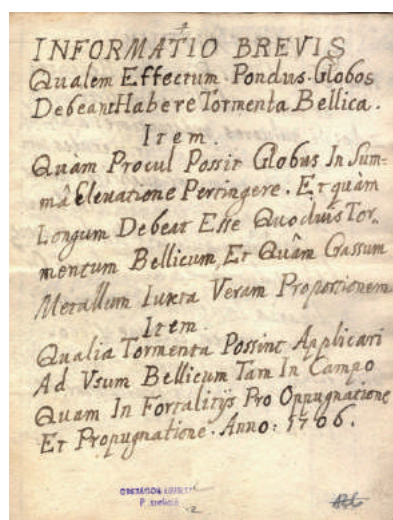 INFORMATIO BREVIS
Qualem Effectum. Pondus. Globos
Debeant Habere Tormenta Bellica.
Item.
Quàm Procul Possit Globus In Sum=
mâ Elevatione Pertingere. Et quàm
Longum Debeat Esse Quoduis Tor,,
mentum Bellicum, Et Quâm Crassum
Metallum Iuxta Veram Proportionem
Item.
Qualia Tormenta Possint Applicari
Ad Vsum Bellicum Tam In Campo
Quam In Fortalitijs Pro Oppugnatione
Et Propugnatione. Anno: 1706.